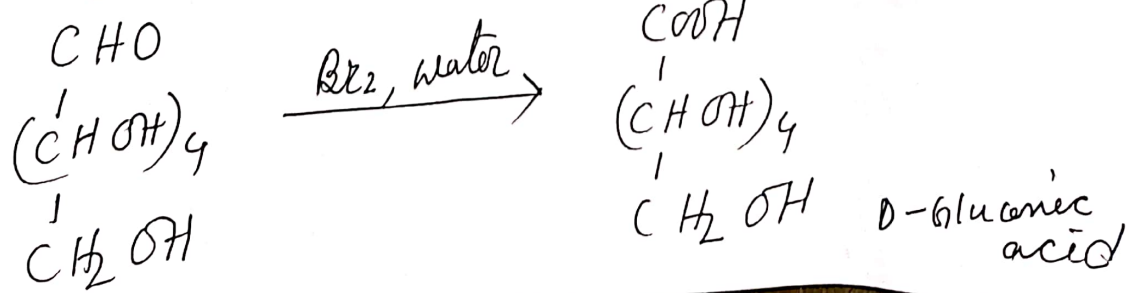 CHO
(CHOH)4
CH2OH
Br2, water
COOH
(CHOH)4
CH2OH
D-Gluconic
acid